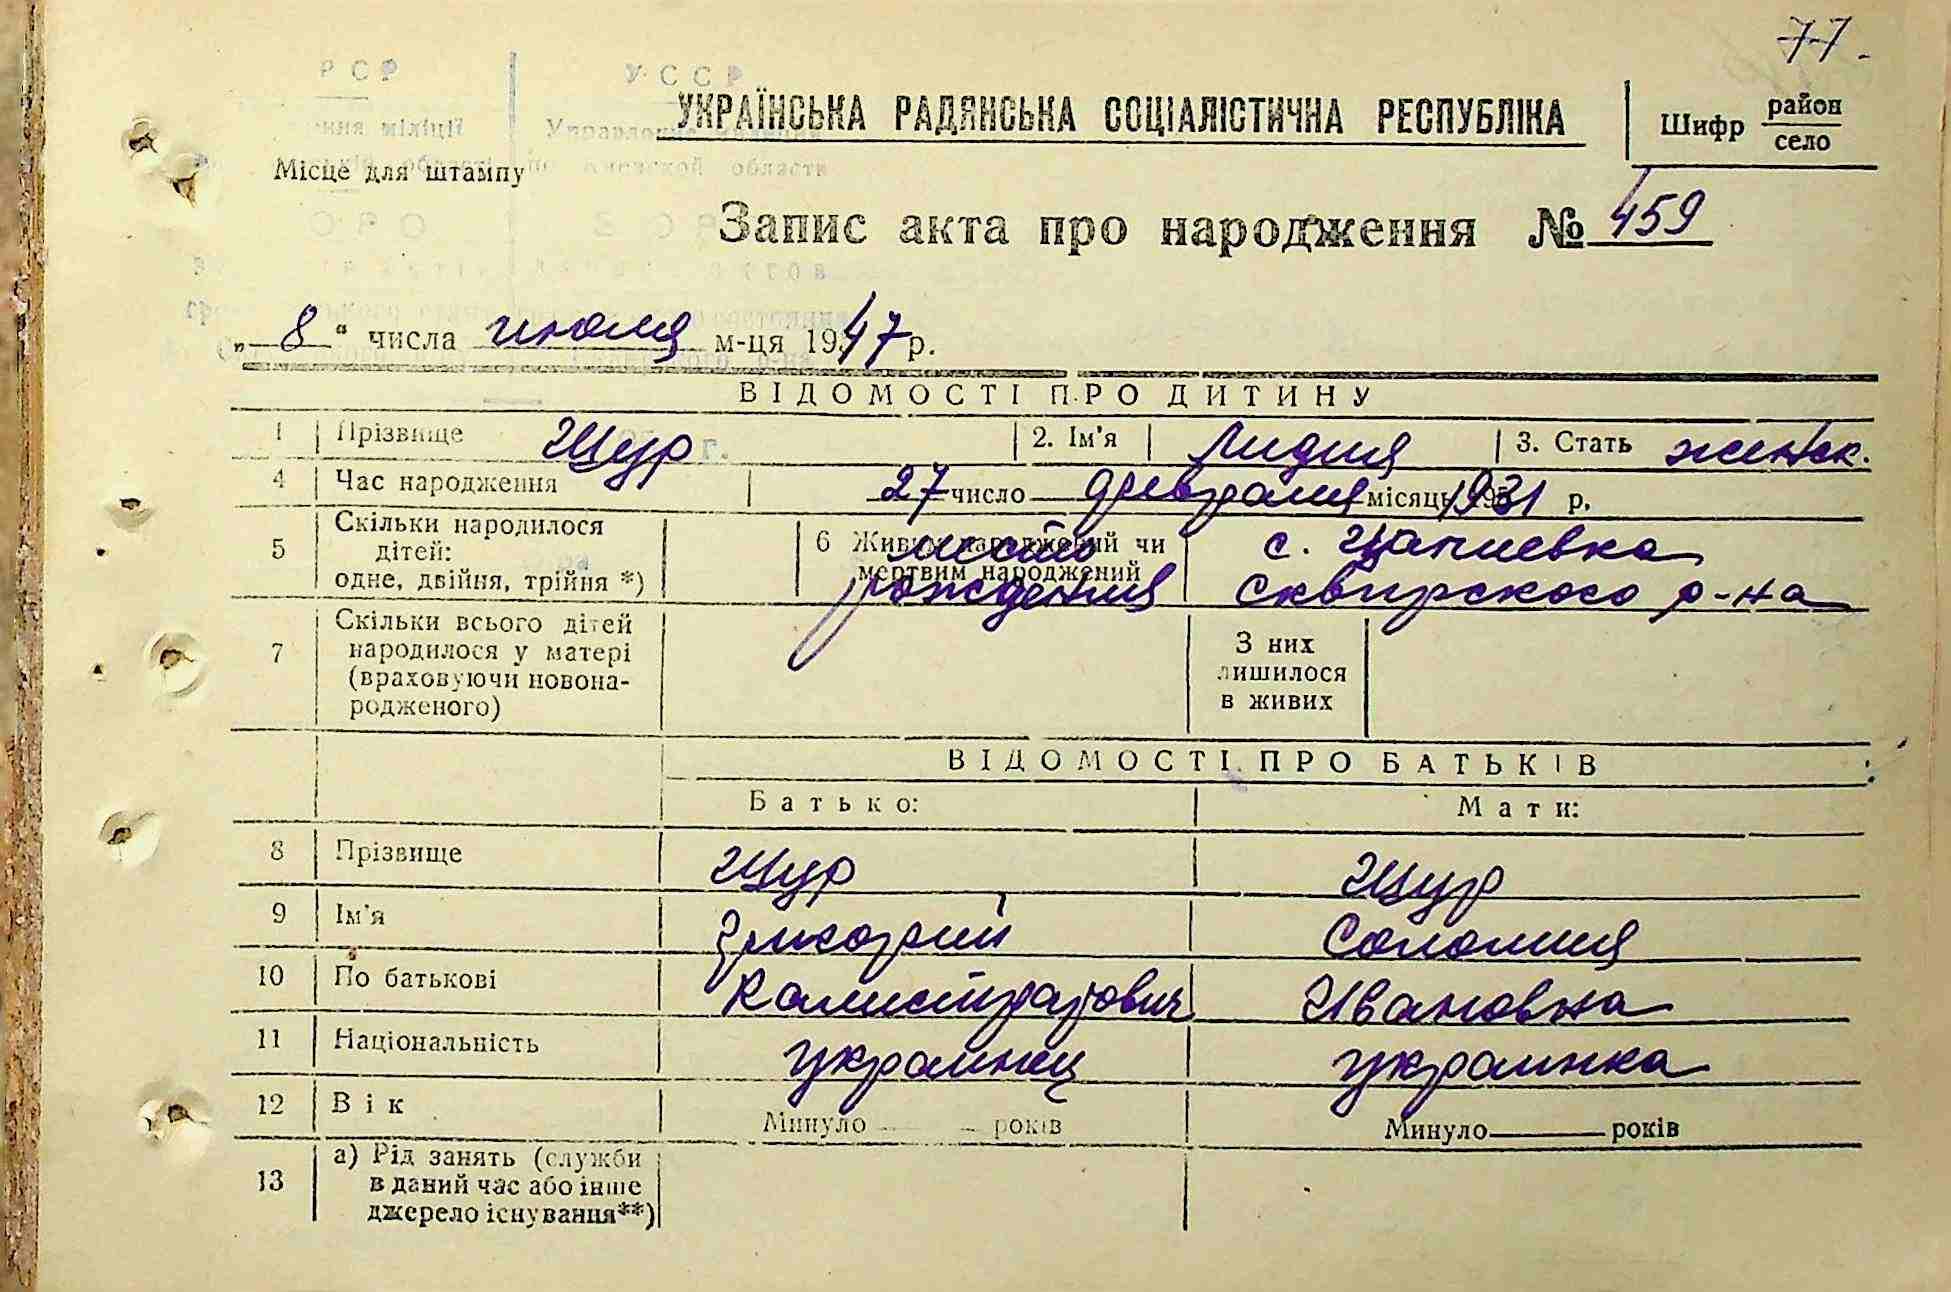 77.
УКРАЇНСЬКА РАДЯНСЬКА СОЦІАЛІСТИЧНА РЕСПУБЛІКА
Шифр район
село
Місце для штампу
Запис акта про народження № 459
„ 8 “ числа июля м-ця 1947 р.
ВІДОМОСТІ ПРО ДИТИНУ
1 Прізвище Щур 2. Ім'я Лидия 3. Стать женск.
4 Час народження 27 число февраля місяць 1931 р.
5 Скільки народилося дітей: одне, двійня, трійня *) 6 Живим народжений чи мертвим народжений место рождения с. Цапиевка Сквирского р-на
7 Скільки всього дітей народилося у матері (враховуючи новонародженого) З них лишилося в живих
ВІДОМОСТІ ПРО БАТЬКІВ
Батько: Мати:
8 Прізвище Щур Щур
9 Ім'я Григорий Соломия
10 По батькові Калистратович Ивановна
11 Національність украинец украинка
12 Вік Минуло років Минуло років
13 а) Рід занять (служби в даний час або інше джерело існування**)